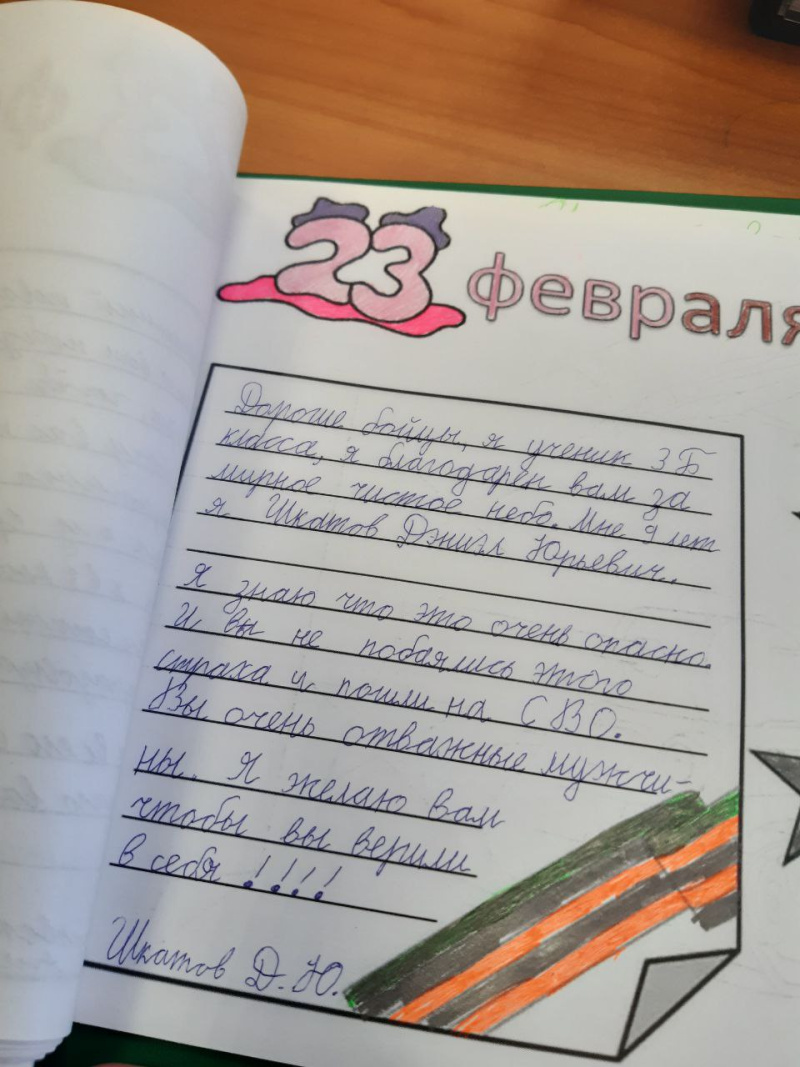 23 февраля
Дорогие бойцы, я ученик 3 Б
класса, я благодарен вам за
мирное чистое небо. Мне 9 лет
я Шкатов Дэнил Юрьевич.
Я знаю что это очень опасно.
И вы не побаялись этого
страха и пошли на СВО.
Вы очень отважные мужчи-
ны. Я желаю вам
чтобы вы верили
в себя !!!!
Шкатов Д.Ю.